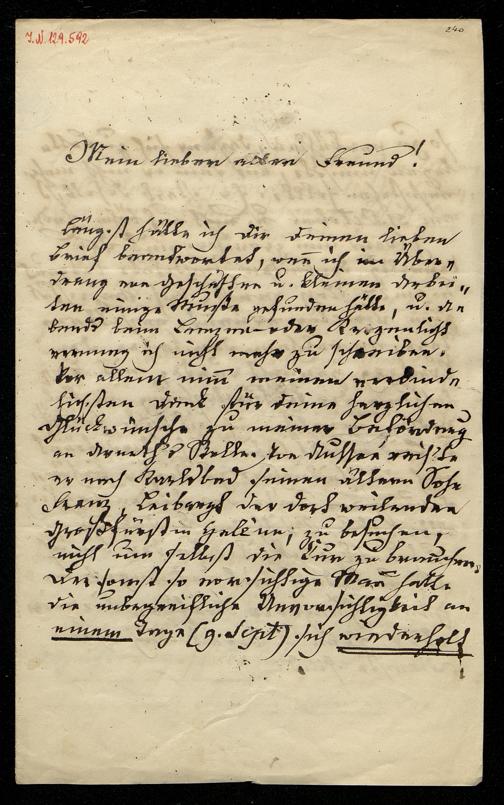 J.N. 129.592
240
Mein lieber alter Freund!
Längst hätte ich Dir Deinen lieben
Brief beantwortet, wenn ich im Über-
drang von Geschäften u. kleinen Arbei-
ten einige Muße gefunden hätte, u. A-
bends beim Lampen- oder Kerzenlicht
vermag ich nicht mehr zu schreiben.
Vor allem nimm meinen verbind-
lichsten Dank für Deine herzlichen
Glückwünsche zu meiner Beförderung
an Arneth's Stelle. Von Aussee reiste
er nach Karlsbad seinen ältern Sohn
Franz, Leibarzt der dort weilenden
Großfürstin Helène, zu besuchen,
nicht um selbst die Cur zu brauchen.
Der sonst so vorsichtige Mann hatte
die unbegreifliche Unvorsichtigkeit an
einem Tage (9. Sept) sich wiederholt